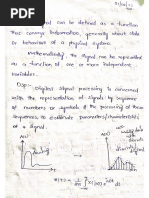 signal can be defined as a function
that conveys information, generally about state
or behaviour of a physical system.
Mathematically, the signal can be represented
as a function of one or more independent
Variables.
DSP:- Digital Signal processing is concerned
with the representation of signals by sequence
of numbers or symbols & the processing of these
sequences, to estimate parameters/characteristics
of a signal.